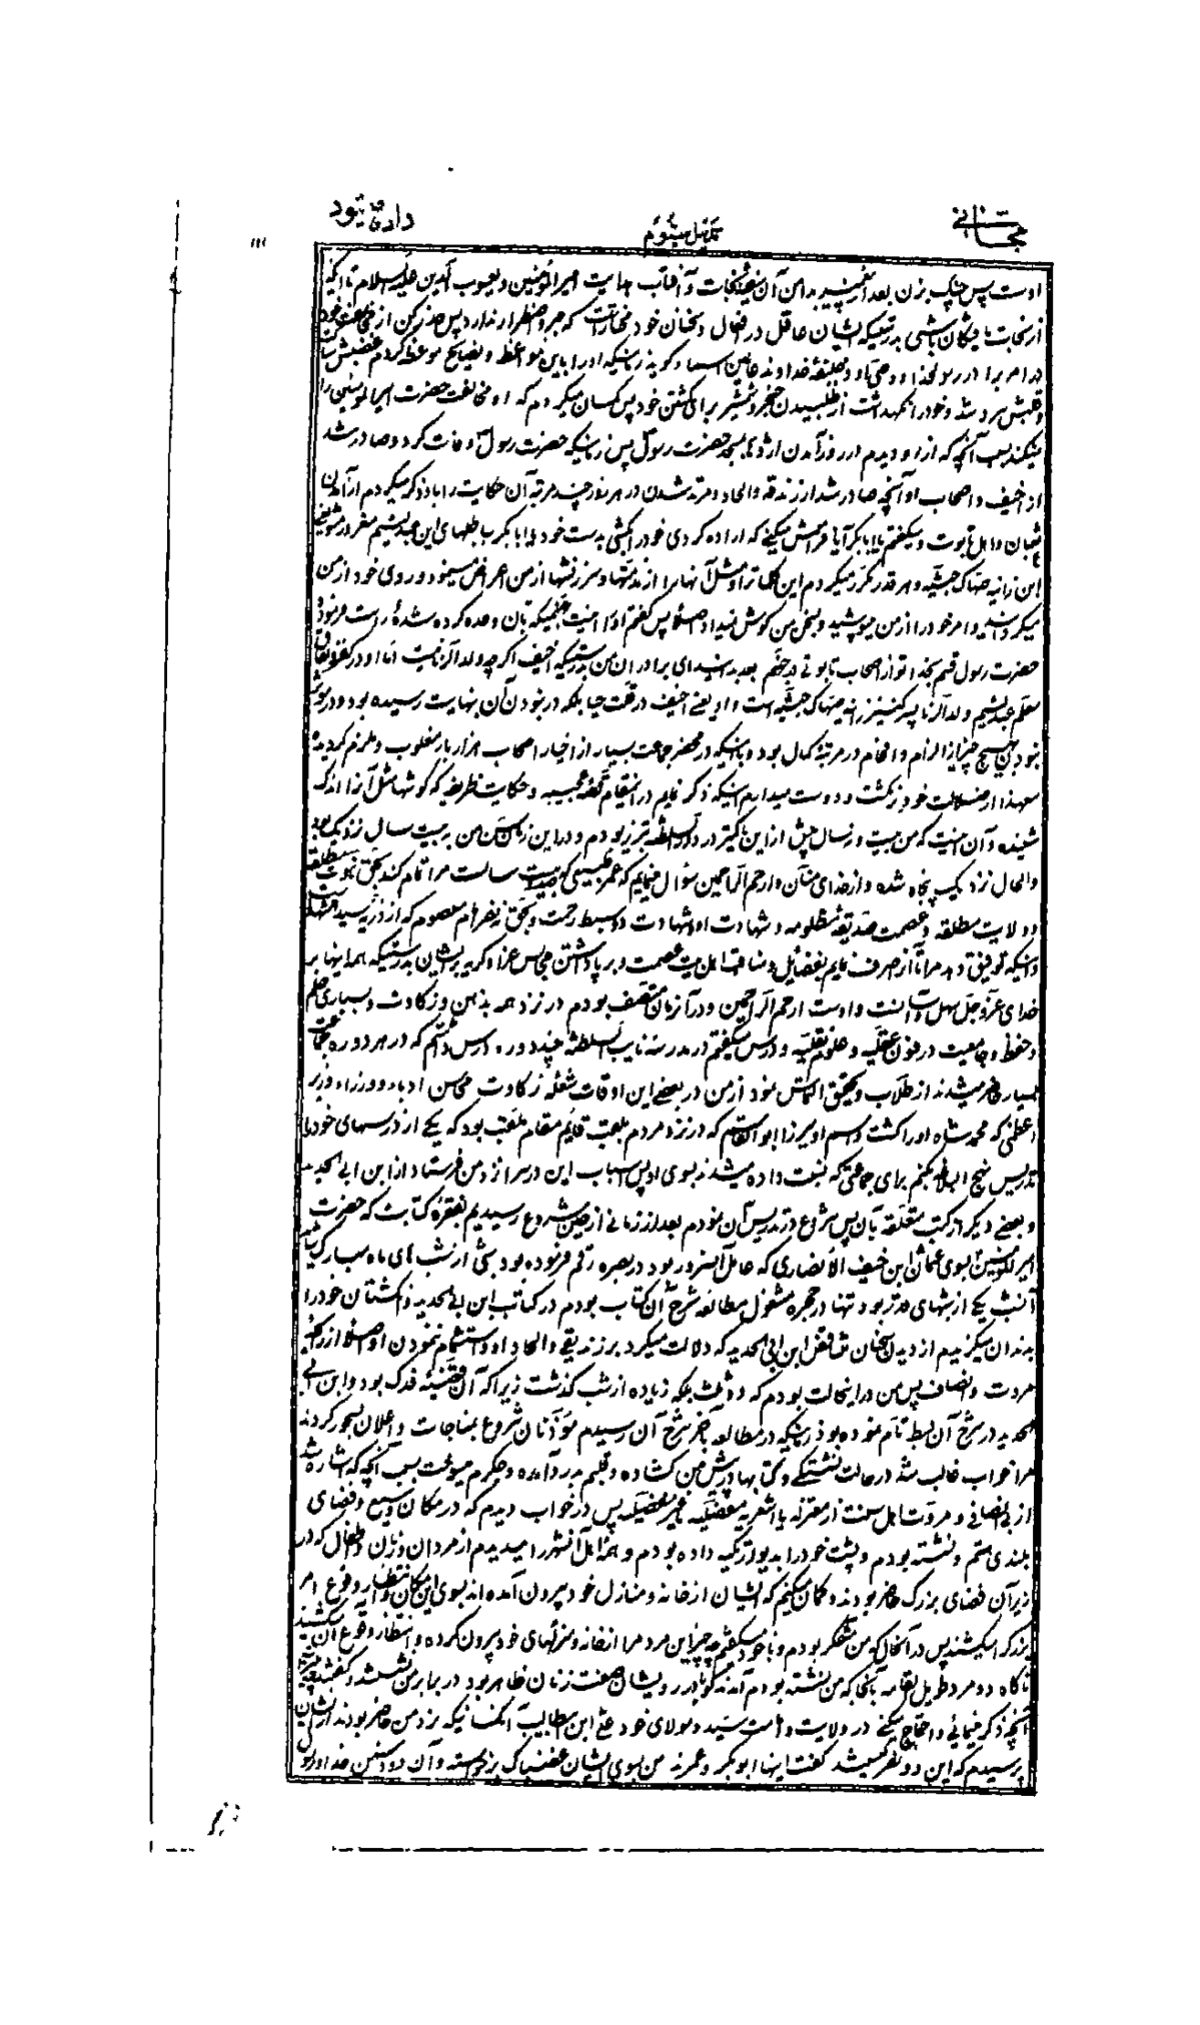 مجانی
داده میشود
اوست پس چنگ بزن بعد از پیغمبر بدامن آن سفینه نجات و آفتاب هدایت امیرالمؤمنین و یعسوب الدین علیه السلام تا اینکه
از نجات یافتگان باشی بدرستیکه ایشان عاقل در افعال و سخنان خود مختار است که جبر و اضطرار ندارد پس حذر کن از
در امر برادر رسولخدا و وصی او و خلیفه خداوند
و قلبش سرد شد و خود را نگهداشت از طلبیدن خنجر و شمشیر برای کشتن خود پس گمان میکردم که او مخالفت حضرت امیرالمؤمنین را
میکند بسبب آنچه که از او دیدم در روز آمدن اژدها بمسجد حضرت رسول پس زمانیکه حضرت رسول وفات کرد و صادر شد
از اخیف و اصحاب او آنچه صادر شد از زندقه و الحاد و مرتد شدن در هر روز چند مرتبه آن حکایت را باو ذکر میکردم از آمدن
ثعبان و اهل تابوت و میگفتم یا ابابکر آیا فراموش میکنی که اراده کردی خود را بکشی بدست خود یا ابابکر
این زانیه صهاک حبشیه و هر قدر مکرر میکردم این کلمات را و مثل آنها را از مذمتها و سرزنشها از من اعراض مینمود و روی خود از من
میگردانید و امر خود را از من میپوشید و بسخن من گوش نمیداد اصلا پس گفتم
حضرت رسول قسم بخدا تو از اصحاب تابوتی در جهنم بعد بدانید ای برادران من بدرستیکه اخیف اگر چه ولد الزنا نیست اما او در کفر و نفاق
معلم عبدتیم و ولد الزنا پسر کنیز زانیه صهاک حبشیه است و او یعنی اخیف در قلت حیا بلکه در نبودن آن بنهایت رسیده بود و در
نبودن هیچ چیز از الزام و افحام در مرتبه کمال بود و با اینکه در محضر جماعت بسیار از اخیار اصحاب هزار بار مغلوب و ملزم گردیده
معهذا از ضلالت خود برنگشت و دوست میدارم اینکه ذکر نمایم در این مقام قصه عجیبه و حکایت ظریفه که گوشها مثل آنرا اندک
شنیده و آن اینست که من بیست و نه سال پیش از این تاریخ در دار السلطنه تبریز بودم و در این زمان سن من بر بیست سال نزدیک بود
و الحال نزدیک به پنجاه شده و از خدای منان و ارحم الراحمین سؤال مینمایم که عمر طبیعی که صد و بیست سالست مرا تمام کند بحق نبوت مطلقه
و ولایت مطلقه و عصمت صدیقه مظلومه و شهادت او و شهادت دو سبط رحمت و بحق نه نفر امام معصوم که از ذریه سید الشهدا
و اینکه توفیق دهد مرا تا آنرا صرف نمایم بفضایل و مناقب اهل بیت عصمت و بر پا داشتن مجلس عزاء و گریه بر ایشان بدرستیکه همه اینها بر
خدای عز و جل سهل و آسانست و اوست ارحم الراحمین و در آن زمان متصف بودم در نزد همه بذهن و زکاوت و بسیاری علم
و حفظ و جامعیت در فنون عقلیه و علوم نقلیه و درس میگفتم در مدرسه نایب السلطنه چند دوره درس داشتم که در هر دوره جماعت
بسیار حاضر میشدند از طلاب و محققین التماس نمود از من در بعضی این اوقات شعله زکاوت محاسن ادباء و وزراء وزیر
اعظمی که محمد شاه او را کشت و اسم او میرزا ابوالقاسم که در نزد مردم بلقب قایم مقام ملقب بود که یکی از درسهای خود را
تدریس نهج البلاغه بکنم برای جماعتی که نسبت داده میشدند بسوی او پس اسباب این درس را نزد من فرستاد از ابن ابی الحدید
و بعضی دیگر از کتب متعلقه بآن پس شروع در تدریس آن نمودم بعد از زمانی از حین شروع رسیدیم بفقره کتابت که حضرت
امیرالمؤمنین بسوی عثمان ابن حنیف الانصاری که عامل آنسرور بود در بصره رقم فرموده بود شبی از شب های ماه مبارک
آنشب یکی از شبهای قدر بود تنها در حجره مشغول مطالعه شرح آن کتاب بودم در کتاب ابن ابی الحدید و انگشتان خود را
بدندان میگزیدم از دیدن سخنان متناقض ابن ابی الحدید که دلالت میکرد بر زندیقی و الحاد او و استشمام ننمودن او اصلا از رایحه
مروت و انصاف پس من در اینحالت بودم که دو ثلث بلکه زیاده از شب گذشت زیرا که آن قضیه فدک بود و ابن ابی
الحدید در شرح آن بسط تام نموده بود زمانیکه در مطالعه بآخر شرح آن رسیدم مؤذنان شروع بمناجات و اعلان سحور کردند
مرا خواب غالب شد در حالت نشستگی و کتابها در پیش من گشاده و قلبم بدرد آمده و جگرم میسوخت بسبب آنچه که اشاره شد
از بی انصافی و مروت اهل سنت از معتزله یا اشعریه مفضلیه یا غیر مفضلیه پس در خواب دیدم که در مکان وسیع و فضای
بلندی هستم و نشسته بودم و پشت خود را بدیوار تکیه داده بودم و همه اهل آنشهر را میدیدم از مردان و زنان و اطفال که در
زیر آن فضای بزرگ حاضر بودند و گمان میکنم که ایشان از خانه و منازل خود بیرون آمده اند بسوی این مکان و انتظار وقوع امر
بزرگ را میکشند پس در آنحال که من متفکر بودم و با خود میگفتم چه چیز این مردم را از خانه و منزلهای خود بیرون کرده و انتظار وقوع آن میکشند
ناگاه دو مرد طویل القامه بآنجا که من نشسته بودم آمدند گویا در رویشان صفت زنان ظاهر بود در برابر من نشستند و گفتند
آنچه ذکر مینمائی و احتجاج میکنی در ولایت و امامت سید و مولای خود علی ابن ابیطالب آنکسانیکه نزد من حاضر بودند از ایشان
پرسیدم که این دو نفر کیستند گفت اینها ابوبکر و عمرند من بسوی ایشان غضبناک برخواسته و آن دو دشمن خدا و رسول